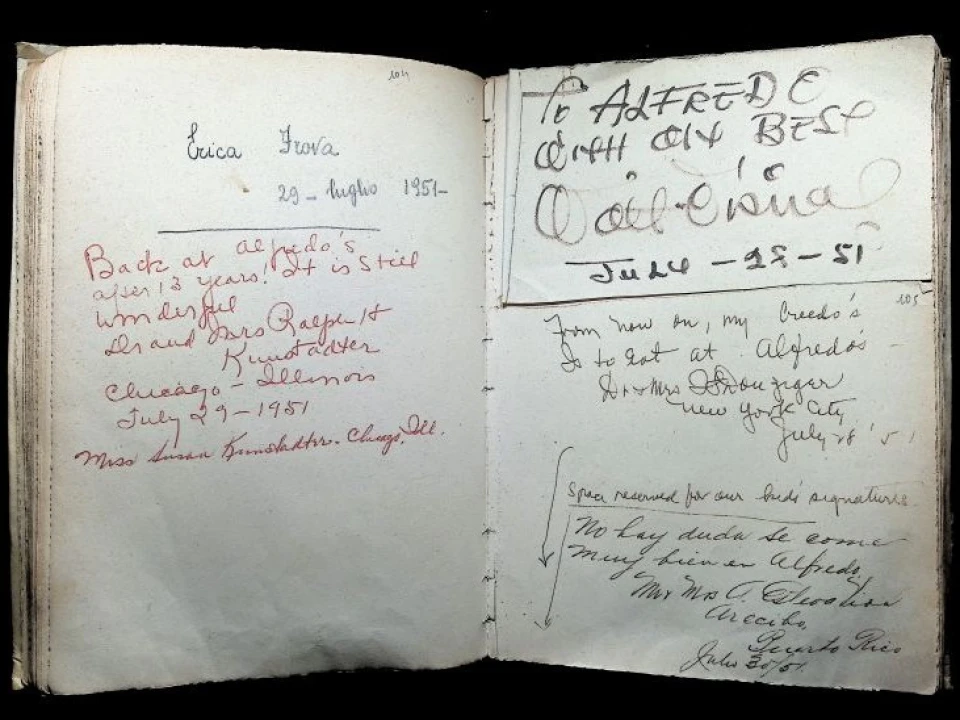 104
Erica Frova
29 - luglio 1951-
Back at Alfredo's
after 13 years! It is still
wonderful
Dr and Mrs Ralph H
Kunstadter
Chicago - Illinois
July 29-1951
Miss Susan Kunstadter. Chicago, Ill.
To ALFREDO
WITH MY BEST
Walt Disney
JULY - 28 - 51
105
From now on, my Creedo's
Is to Eat at Alfredo's -
Dr + Mrs Danziger
New York City
July 28 '51
Space reserved for our kids' signatures
No hay duda se come
muy bien en Alfredo.
Mr Mrs A.
Arecibo,
Puerto Rico
Julio 30/51